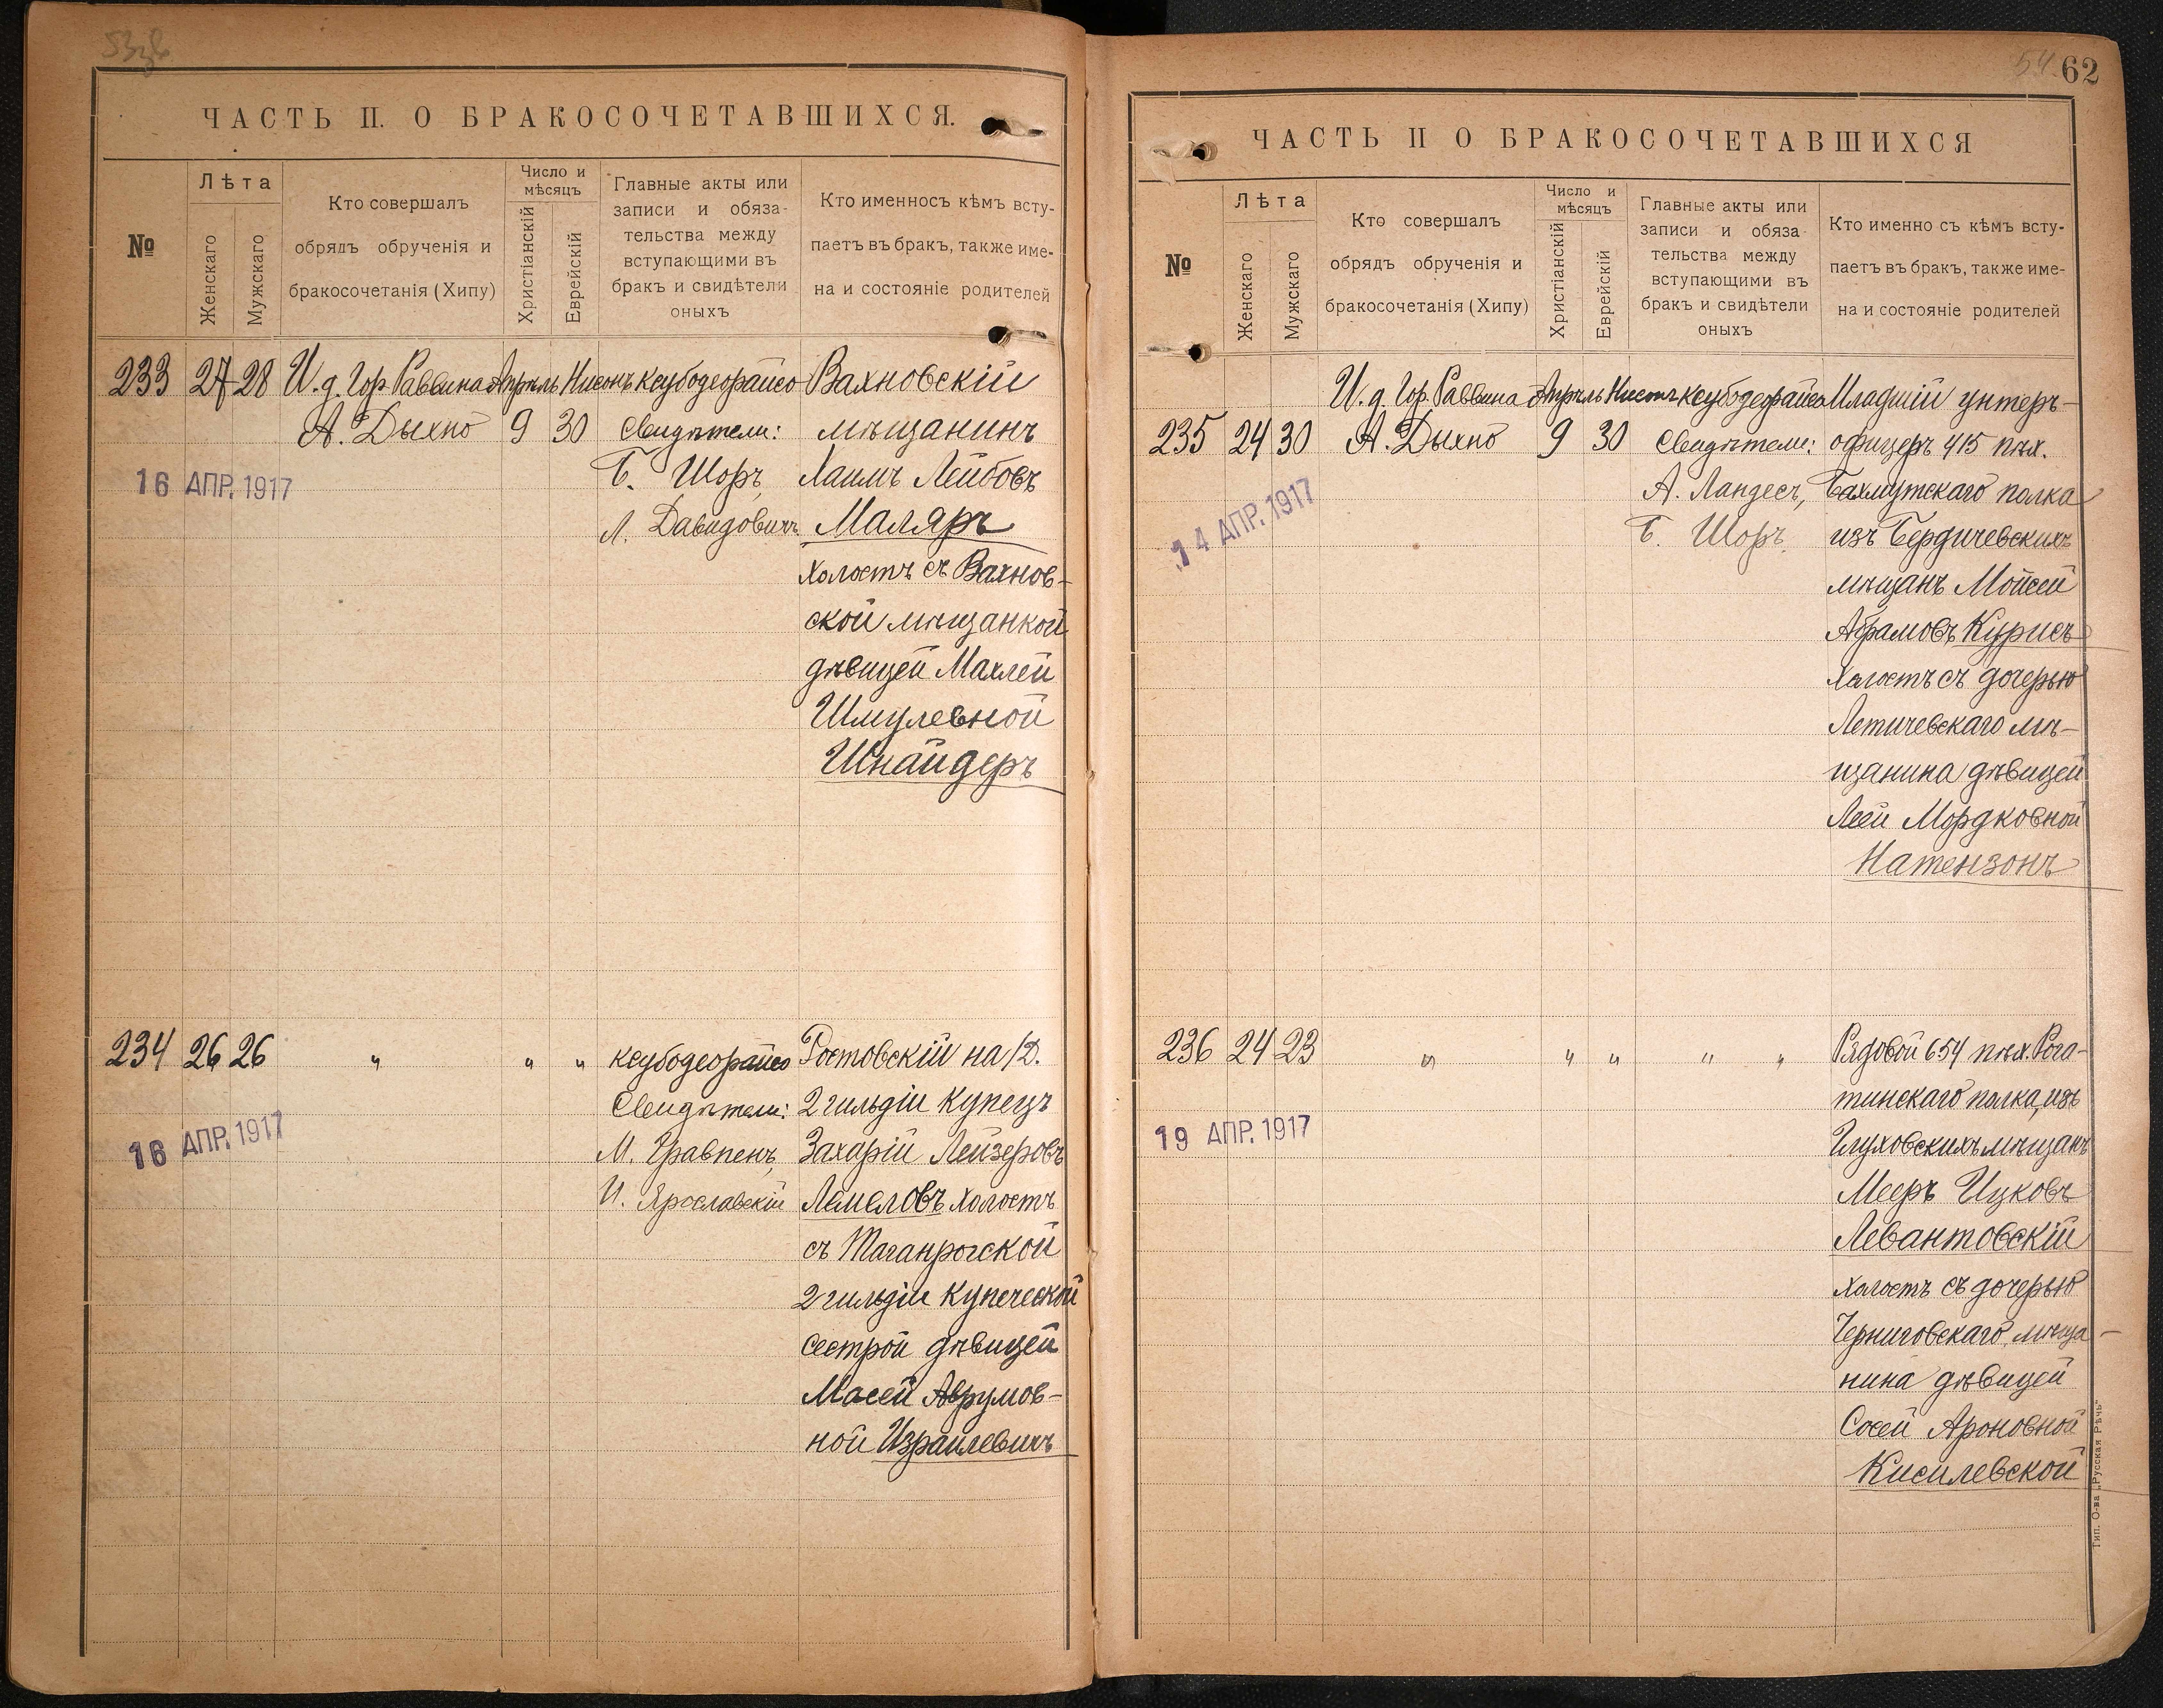 ЧАСТЬ II. О БРАКОСОЧЕТАВШИХСЯ.
№
Лѣта
Женскаго
Мужскаго
Кто совершалъ
обрядъ обрученія и
бракосочетанія (Хипу)
Число и
мѣсяцъ
Христіанскій
Еврейскій
Главные акты или
записи и обяза-
тельства между
вступающими въ
бракъ и свидѣтели
оныхъ
Кто именносъ кѣмъ всту-
паетъ въ бракъ, также име-
на и состояніе родителей
233 27 28 И. д. Гор. Раввина Апрѣль Нисонъ ксубодеорайсо Вахновскій
А. Дыхно 9 30 Свидѣтели: мѣщанинъ
16 АПР. 1917
Б. Шоръ, Хаимъ Лейбовъ
Л. Давидовичъ Маляръ
холостъ съ Вахнов-
ской мѣщанкой
дѣвицей Махлей
Шмулевной
Шнайдеръ
234 26 26 " " " ксубодеорайсо Ростовскій на/Д.
Свидѣтели: 2 гильдіи купецъ
16 АПР. 1917
М. Гравпенъ, Захарій Лейзеровъ
И. Ярославскій Лемеловъ холостъ
съ Таганрогской
2 гильдіи купеческой
сестрой дѣвицей
Масей Аврумов-
ной Израилевичъ
62
ЧАСТЬ II О БРАКОСОЧЕТАВШИХСЯ
№
Лѣта
Женскаго
Мужскаго
Кто совершалъ
обрядъ обрученія и
бракосочетанія (Хипу)
Число и
мѣсяцъ
Христіанскій
Еврейскій
Главные акты или
записи и обяза-
тельства между
вступающими въ
бракъ и свидѣтели
оныхъ
Кто именно съ кѣмъ всту-
паетъ въ бракъ, также име-
на и состояніе родителей
И. д. Гор. Раввина Апрѣль Нисонъ ксубодеорайсо Младшій унтеръ-
235 24 30 А. Дыхно 9 30 Свидѣтели: офицеръ 415 пѣх.
14 АПР. 1917
А. Ландесъ, Бахмутскаго полка
Б. Шоръ. изъ Бердичевскихъ
мѣщанъ Мойсей
Абрамовъ Курисъ
холостъ съ дочерью
Летичевскаго мѣ-
щанина дѣвицей
Леей Мордковной
Натензонъ
236 24 23 " " " " " Рядовой 654 пѣх. Рога-
тинскаго полка, изъ
19 АПР. 1917
Глуховскихъ мѣщанъ
Мееръ Ицковъ
Левантовскій
холостъ съ дочерью
Черниговскаго мѣща-
нина дѣвицей
Сосей Ароновной
Кисилевской
Тип. О-ва „Русская Рѣчь"